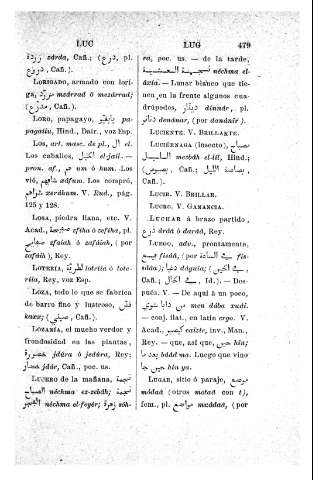 LUC
LUG
479
زردة zárda, Cañ.; (درع; pl.
درع, Cañ.).
LORIGADO, armado con lori-
ga, مزرّد mezárred ó mezárrad;
Cañ. (مدرع).
LORO, papagayo, بابغيو pa-
pagáiu, Hind., Dair., voz Esp.
LOS, art. masc. de pl., ال el.
Los caballos, الخيل el-jail. —
pron. af., هم um ó hum. Los
vió, شافهم xáfum. Los compró,
شراهم xeráhum. V. Rud., pág.
125 y 128.
LOSA, piedra llana, etc. V.
Acad., صفيحة sfiha ó safiha, pl.
صفايح sfaiah ó safáiah, (por
safáih), Rey.
LOTERÍA, لطرية lotría ó lote-
ría, Rey, voz Esp.
LOZA, todo lo que se fabrica
de barro fino y lustroso,
Cañ. (صيني;
LOZANÍA, el mucho verdor y
frondosidad en las plantas,
خضورة jdúra ó jedúra, Rey;
خضار jdár, Cañ., poc. us.
LUCERO de la mañana, نجمة
الصباح néchma es-sebáh; نجمة
الفجر néchma el-feyér; زهرة zóh-
ra, poc. us. — de la tarde,
نجمة العشية néchma el-
áxia. — Lunar blanco que tie-
nen en la frente algunos cua-
drúpedos, دينار dinnár, pl.
دنانر denánar, (por danánir).
LUCIENTE. V. BRILLANTE.
LUCIÉRNAGA (insecto), مصباح
الليل mezbáh el-lil, Hind.;
Cañ.;
Cañ.).
LUCIR. V. BRILLAR.
LUCRO. V. GANANCIA.
LUCHAR á brazo partido,
درع drad ó darád, Rey.
LUEGO, adv., prontamente,
فيسع fisáá, (por في الساعة fis-
sáaa); دغيا dágaia; (في الحين,
Cañ.; في الحال, Id.). — Des-
pués. V. — De aquí á un poco,
من دابا شوي men dába xuái.
— conj. ilat., en latin ergo. V.
Acad., كيصير caizir, inv., Man.,
Rey. — que, así que, حين hin;
بعد ما báad ma. Luego que vino
حين جا hin ya.
LUGAR, sitio ó paraje, موضع
módad (otros motad con t),
fem., pl. مواضع muádad, (por